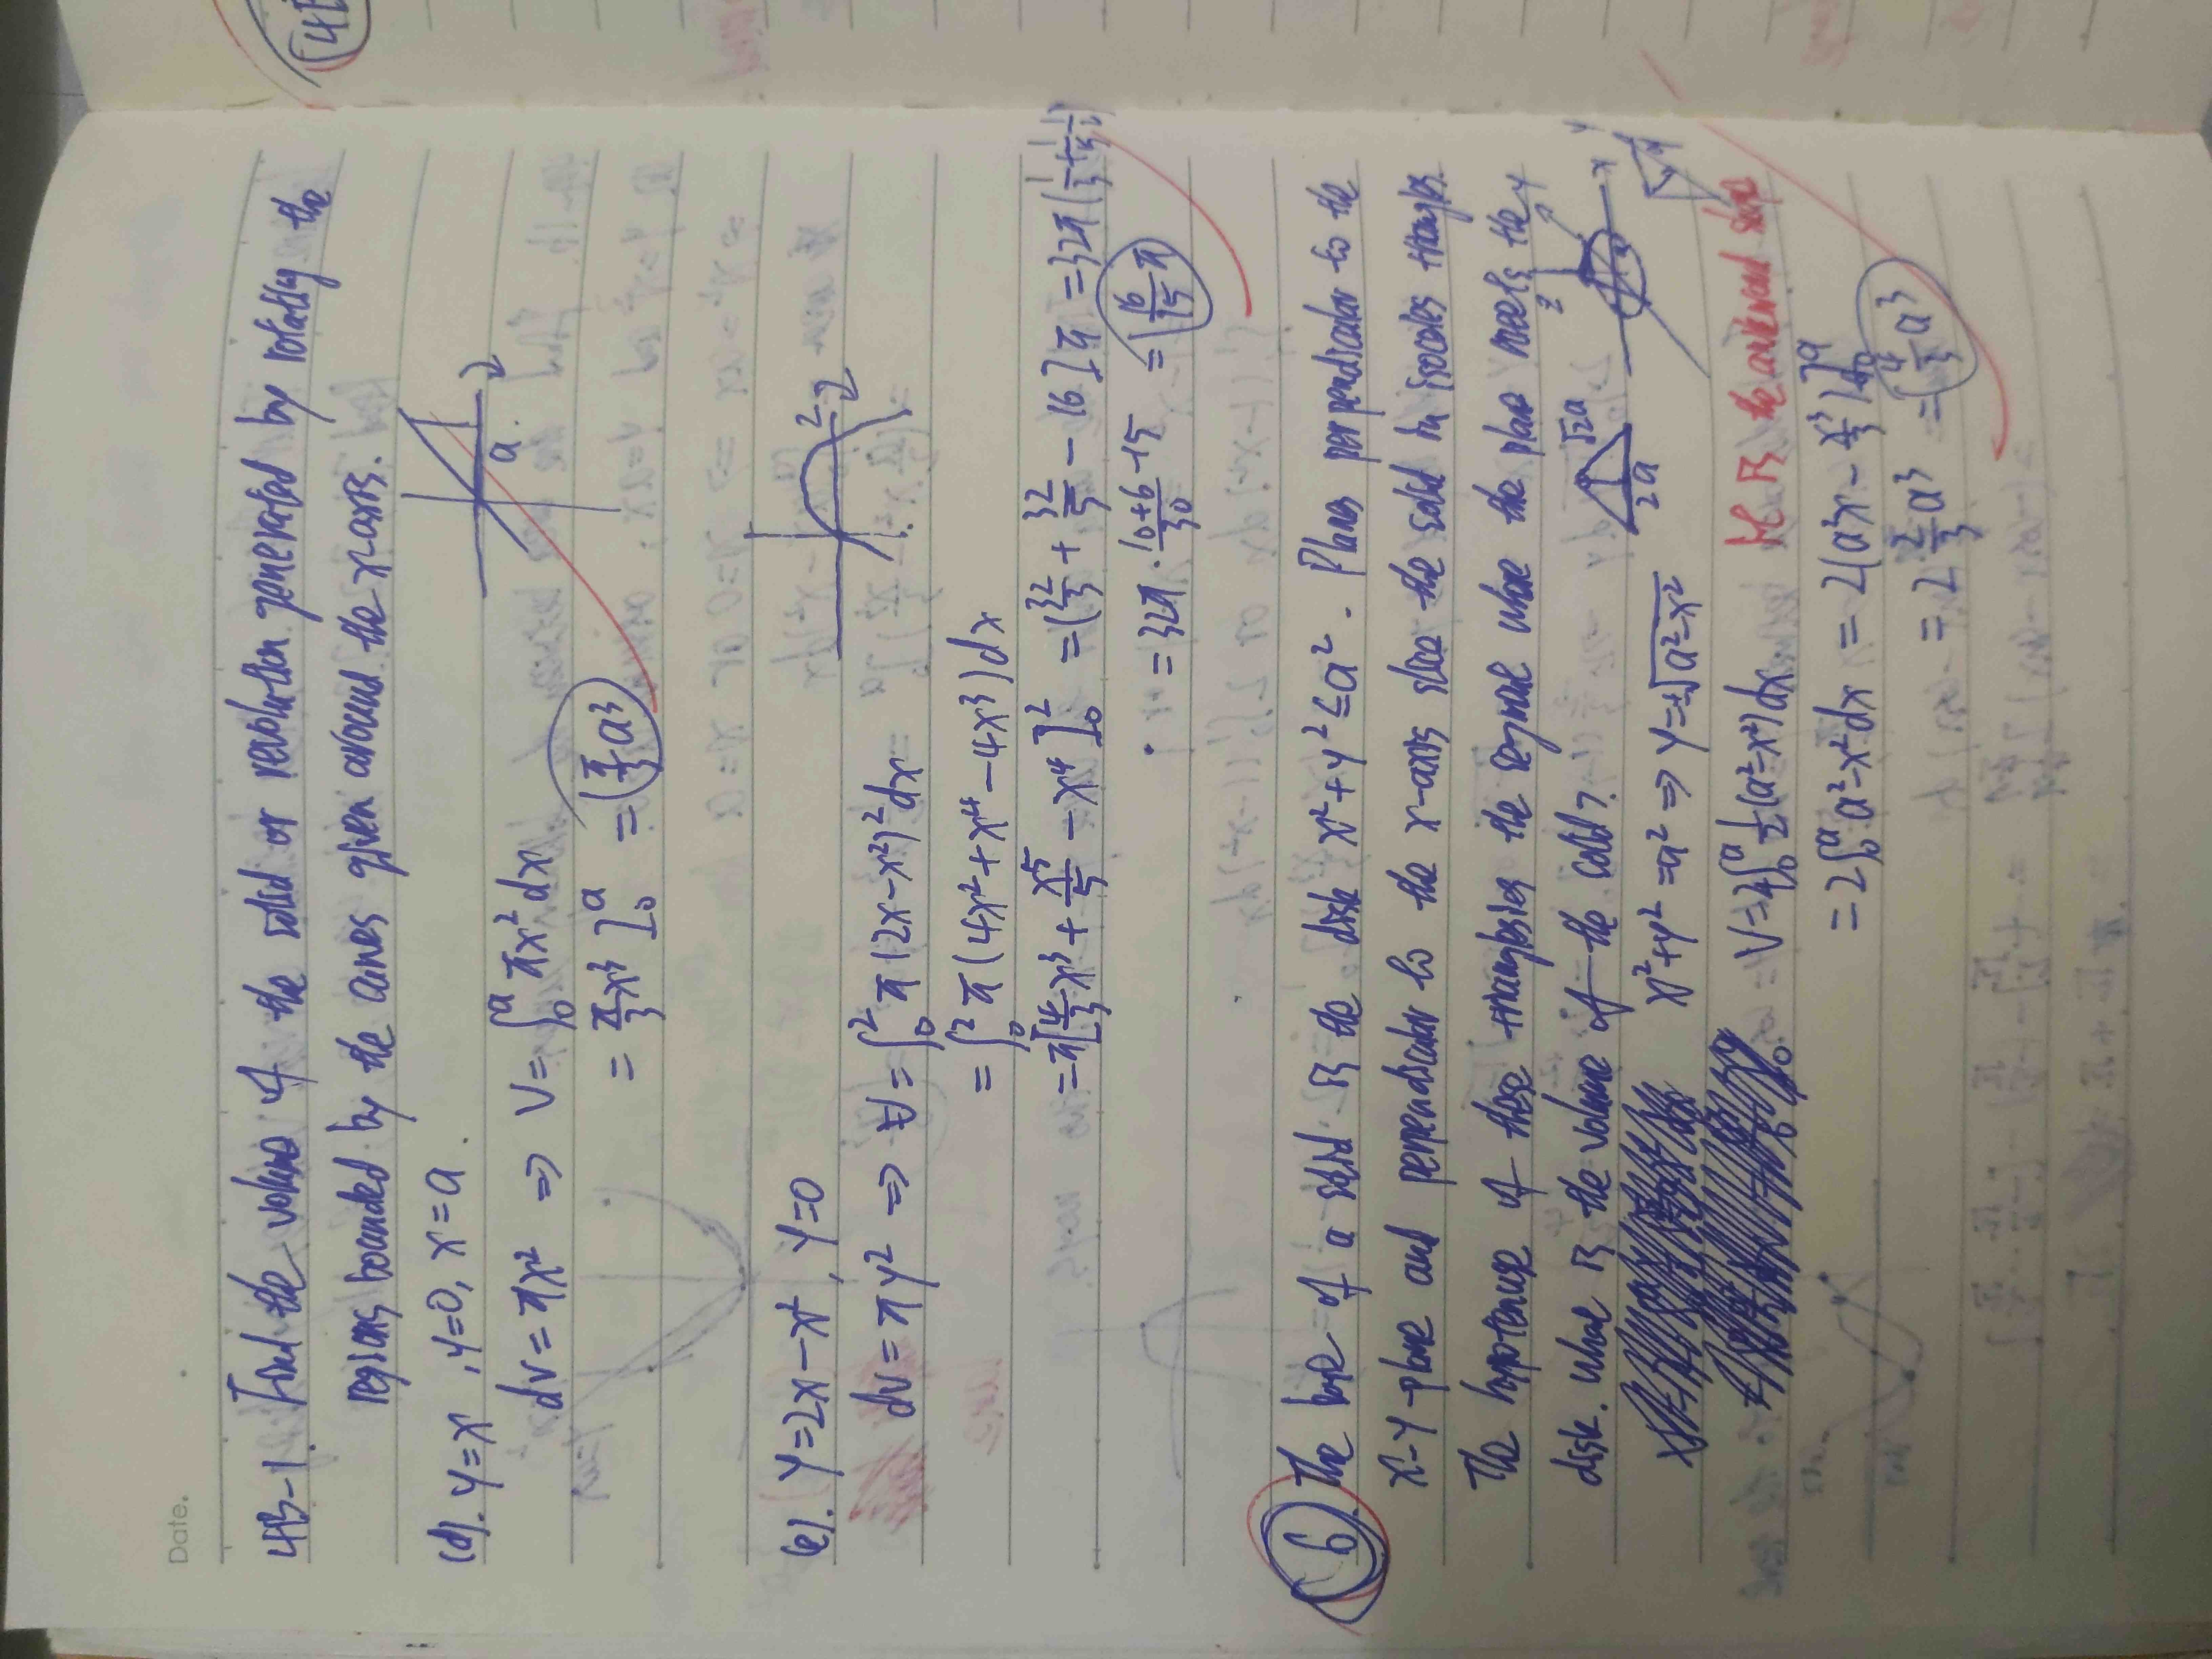 Date.
4B-1. Find the volume of the solid of revolution generated by rotating the
regions bounded by the curves given around the x-axis.
(d). y=x, y=0, x=a.
a
dv=πx² ⇒ V=∫₀ᵃ πx² dx
= π/3 x³ ]₀ᵃ = (π/3 a³)
(e). y=2x-x², y=0
2
dv=πy² ⇒ V=∫₀² π(2x-x²)² dx
= ∫₀² π(4x²+x⁴-4x³)dx
= π[4/3 x³ + x⁵/5 - x⁴]₀² = (32/3 + 32/5 - 16]π = 32π(1/3+1/5-1/2)
= 32π · (10+6-15)/30 = (16/15 π)
6. The base of a solid is the disk x²+y² ≤ a². Planes perpendicular to the
x-y-plane and perpendicular to the x-axis slice the solid in isoceles triangles.
The hypotenuse of these triangles is the segment where the plane meets the
disk. What is the volume of the solid?
x²+y²=a² ⇒ y=±√a²-x²
2a
√2a
z
x
y
V=4∫₀ᵃ ½(a²-x²)dx
= 2∫₀ᵃ a²-x² dx = 2(a²x - x³/3)]₀ᵃ
= 2 2/3 a³ = (4/3 a³)